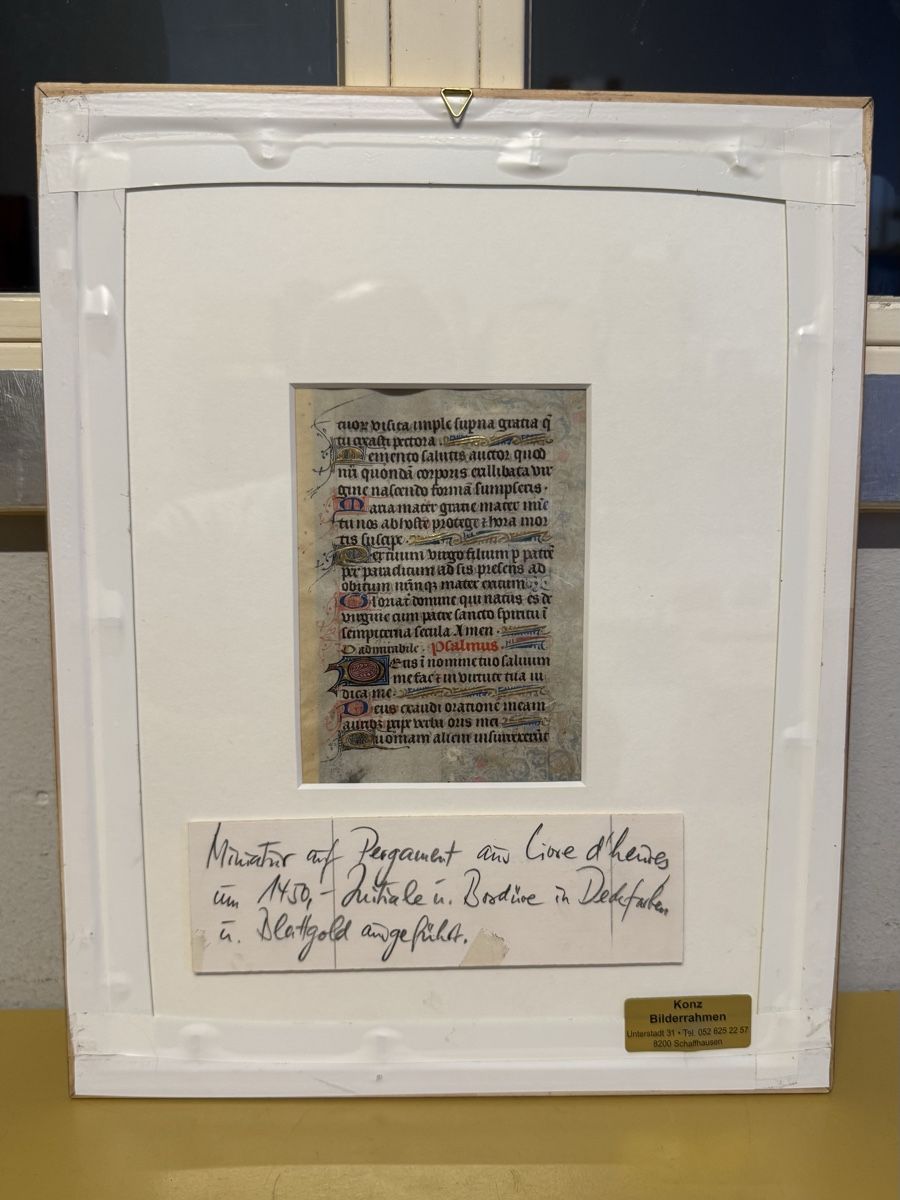 tuor visita imple supna gratia q̄
tu creasti pectora
Memento salutis auctor quod
nr̄i quondā corporis exillibata vir
gine nascendo formā sumpseris.
Maria mater gratie mater mīe
tu nos ab hoste protege ⁊ hora mor
tis suscipe.
per paraclitum ad sis presens ad
obitum nr̄m qz mater exitum
Gloria t̄ domine qui natus es de
virgine cum patre sancto spiritu ī
sempiterna secula Amen.
O admirabile. Psalmus.
Deus ī nomine tuo saluum
me fac ⁊ in virtute tua iu
dica me.
Deus exaudi oratione meam
oris mei
Quoniam alieni insurrexerūt
Miniatur auf Pergament aus Livre d'heures
um 1450,– Initiale u. Bordüre in Deckfarben
u. Blattgold ausgeführt.
Konz
Bilderrahmen
Unterstadt 31 • Tel. 052 625 22 57
8200 Schaffhausen